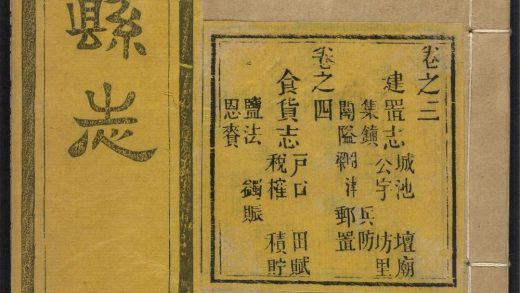 卷之三
建置志 城池 壇廟
公宇 坊里
集鎮 兵防
關隘 津 郵置
卷之四
食貨志 戶口 田賦
稅榷 積貯
鹽法 蠲賑
恩賚
縣志